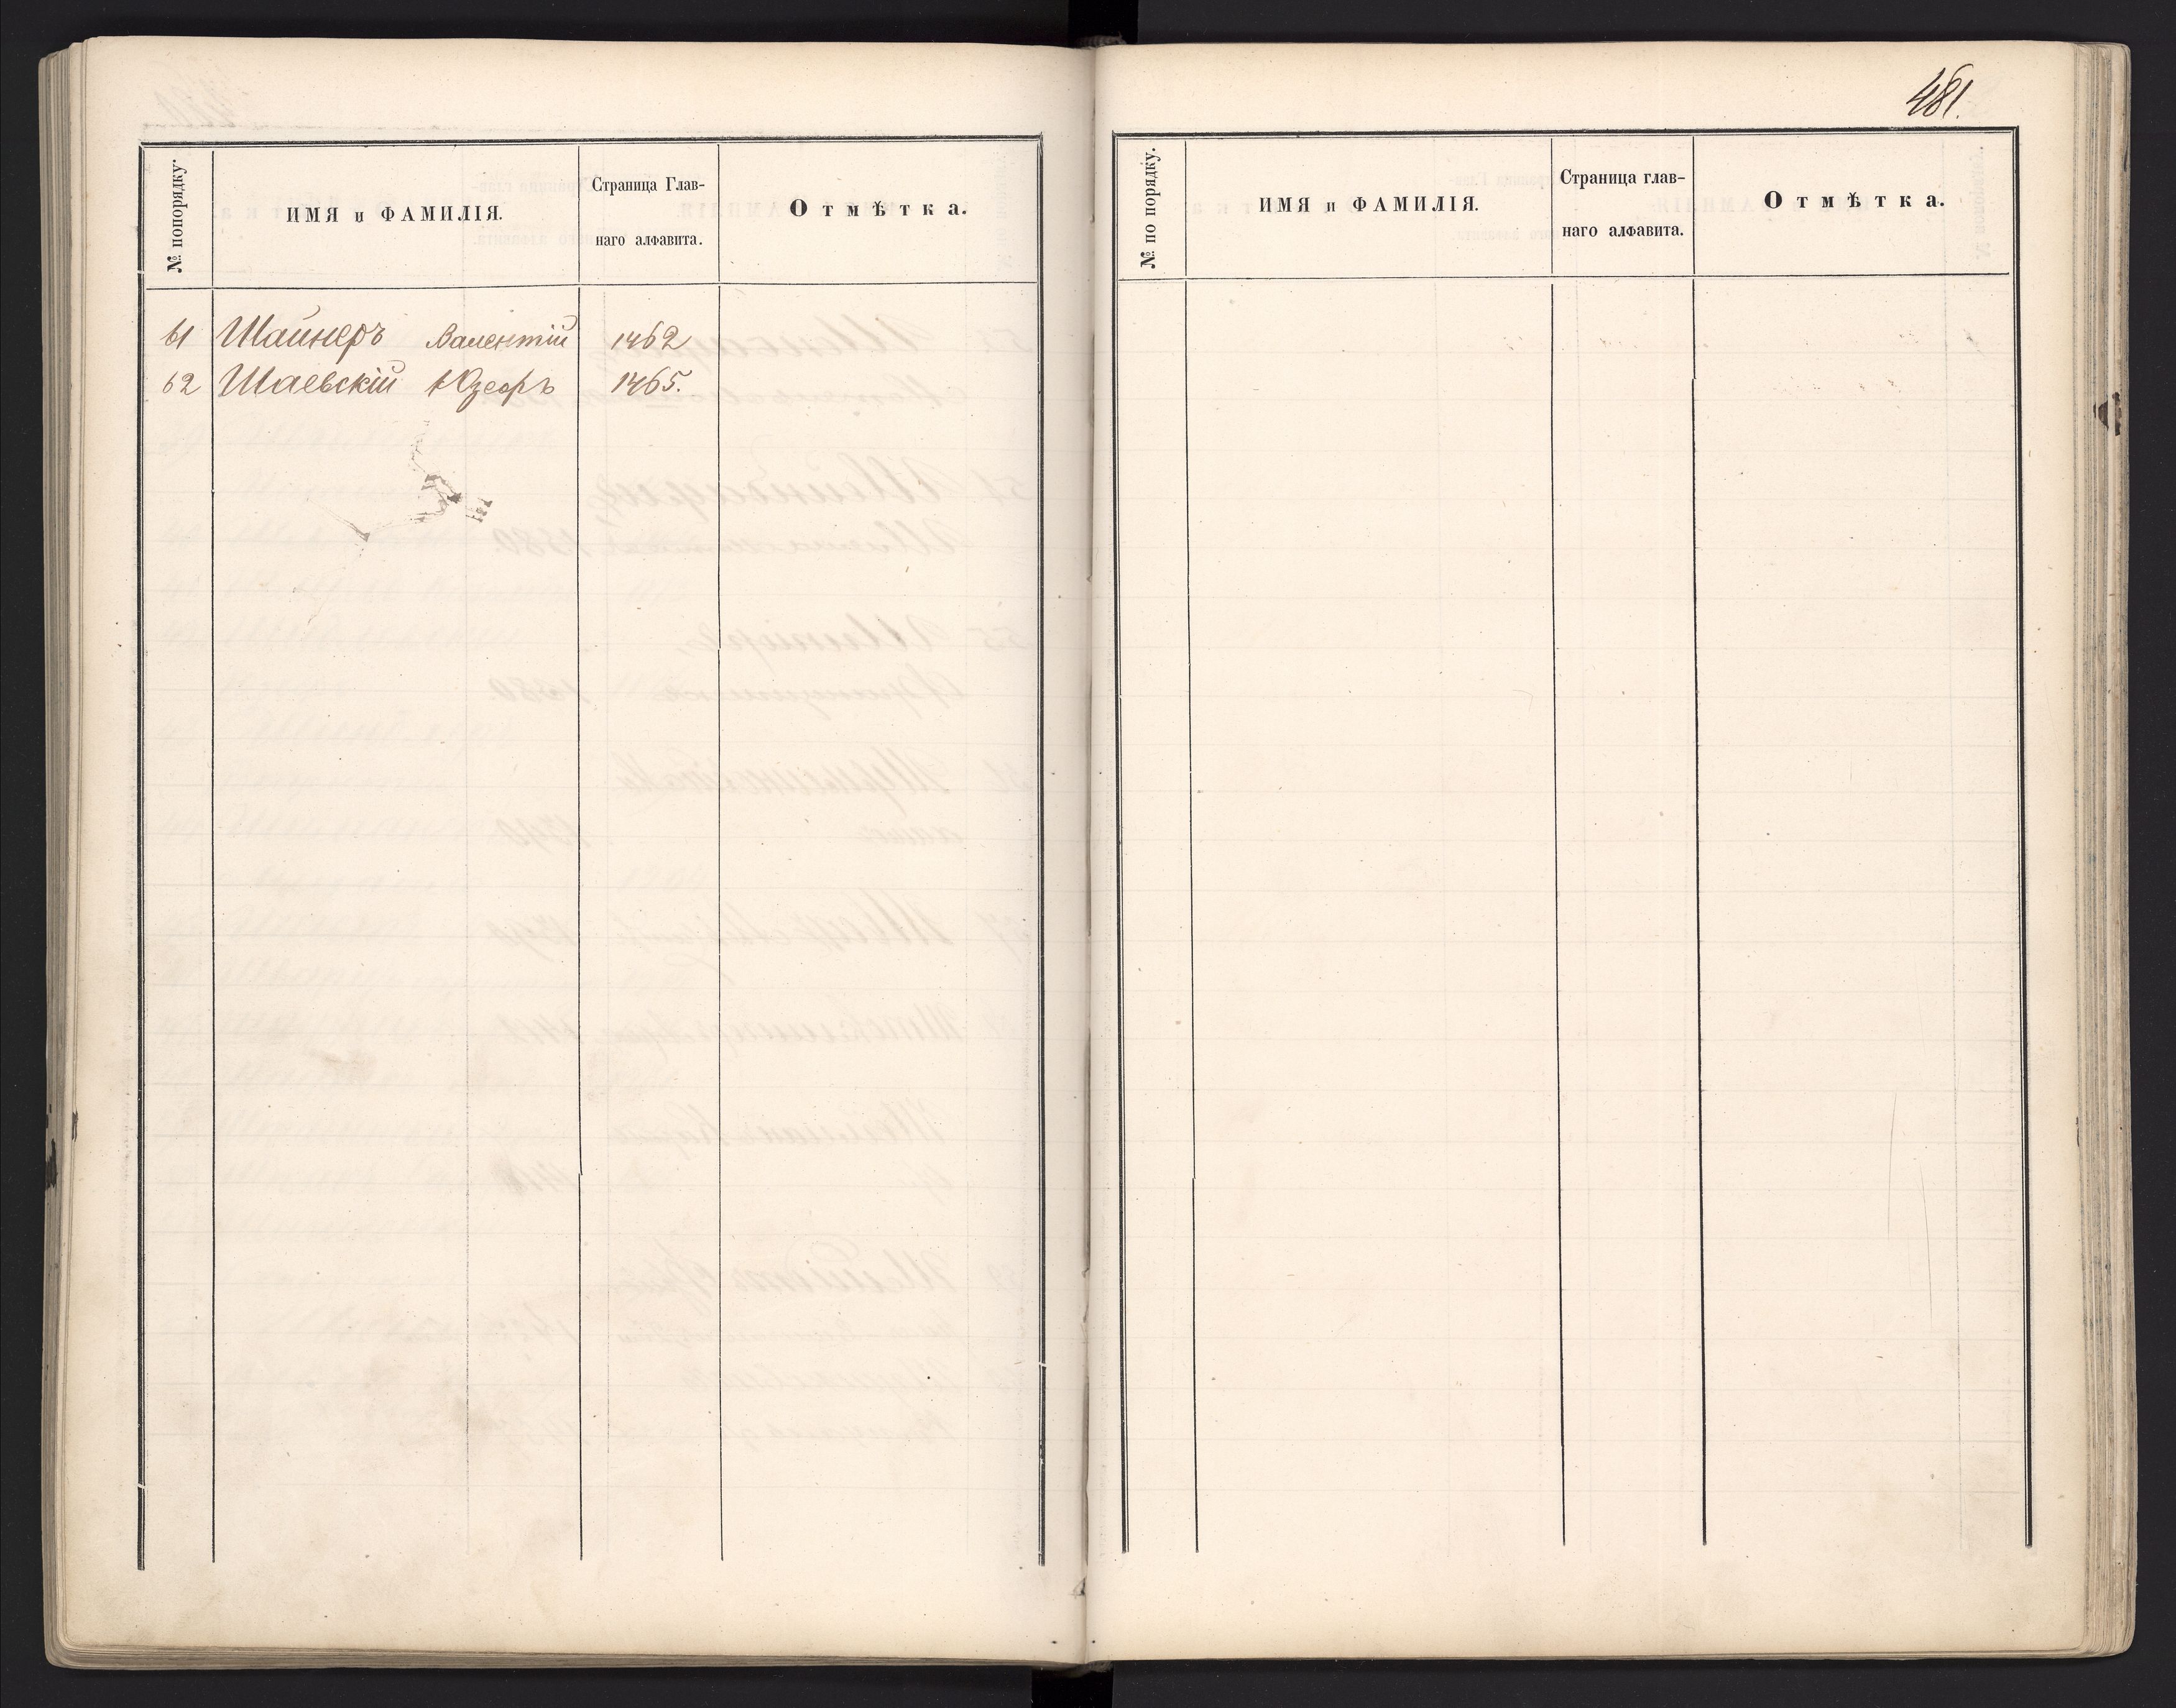 № попорядку.
ИМЯ и ФАМИЛІЯ.
Страница Глав-
наго алфавита.
Отмѣтка.
61 Шайнеръ Валентій 1462
62 Шаевскій Юзефъ 1465.
481.
№ по порядку.
ИМЯ и ФАМИЛІЯ.
Страница глав-
наго алфавита.
Отмѣтка.